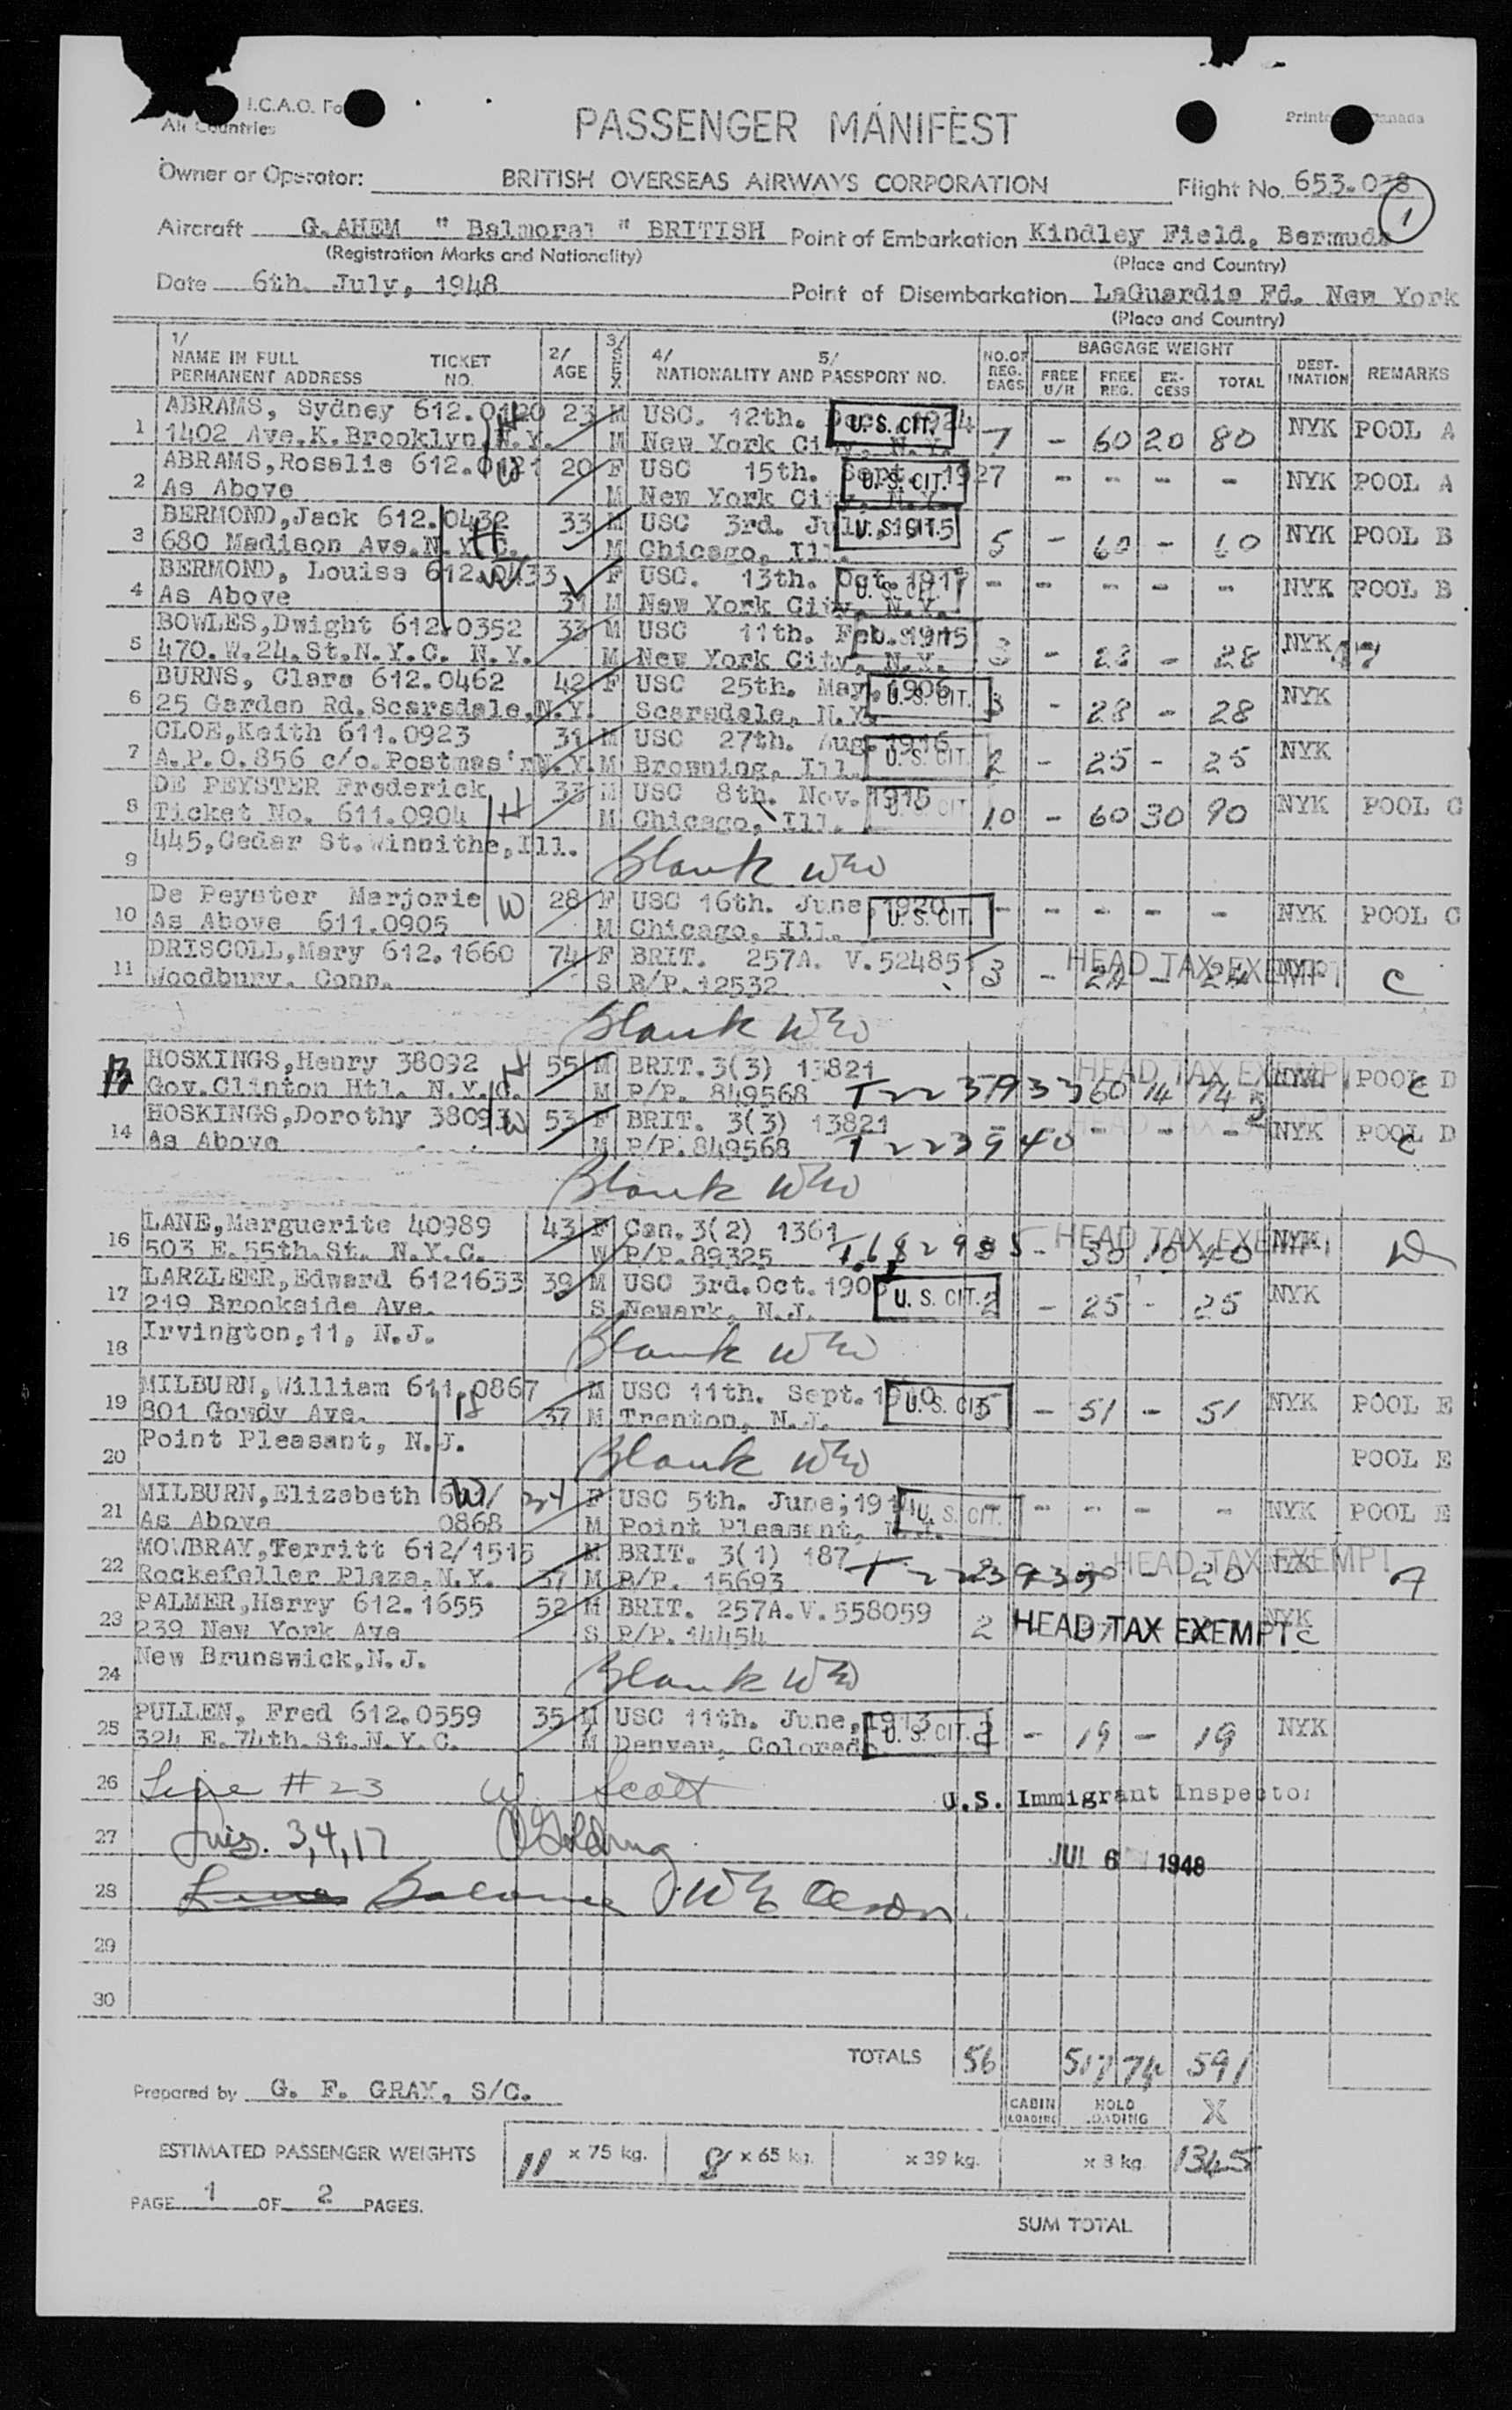 I.C.A.O.
All Countries
PASSENGER MANIFEST
Owner or Operator: BRITISH OVERSEAS AIRWAYS CORPORATION Flight No. 653.038
1
Aircraft G.AHEM " Balmoral " BRITISH Point of Embarkation Kindley Field, Bermuda
(Registration Marks and Nationality) (Place and Country)
Date 6th. July, 1948 Point of Disembarkation LaGuardia Fd. New York
(Place and Country)
1/ NAME IN FULL PERMANENT ADDRESS TICKET NO. 2/ AGE 3/ SEX 4/ 5/ NATIONALITY AND PASSPORT NO. NO. OF REG. BAGS BAGGAGE WEIGHT DEST-INATION REMARKS
FREE U/R FREE REG. EX-CESS TOTAL
ABRAMS, Sydney 612.0420 23 M USC. 12th. 1924 U.S. CIT.
1 1402 Ave.K.Brooklyn, N.Y. M New York City, N.Y. 7 - 60 20 80 NYK POOL A
ABRAMS,Rosalie 612. 20 F USC 15th. Sept. 1927 U.S. CIT.
2 As Above M New York City, N.Y. - - - - NYK POOL A
BERMOND,Jack 612.0432 33 M USC 3rd. 1915 U.S. CIT.
3 680 Madison Ave.N.Y.C. M Chicago, Ill. 5 - 60 - 60 NYK POOL B
BERMOND, Louise 612.0433 F USC. 13th. Oct. 1917 U.S. CIT.
4 As Above 31 M New York City, N.Y. - - - - - NYK POOL B
BOWLES,Dwight 612.0352 33 M USC 11th. Feb. 1915
5 470.W.24.St.N.Y.C. N.Y. M New York City, N.Y. 3 - 28 - 28 NYK 17
BURNS, Clara 612.0462 42 F USC 25th. May, 1906 U.S. CIT.
6 25 Garden Rd.Scarsdale,N.Y. Scarsdale, N.Y. 3 - 28 - 28 NYK
CLOE,Keith 611.0923 31 M USC 27th. Aug. 1916 U.S. CIT.
7 A.P.O.856 c/o.Postmas'r N.Y. M Browning, Ill. 2 - 25 - 25 NYK
DE PEYSTER Frederick H 33 M USC 8th. Nov. 1915 U.S. CIT
8 Ticket No. 611.0904 M Chicago, Ill. 10 - 60 30 90 NYK POOL C
445,Cedar St.Winnithe,Ill.
9 Blank WEO
De Peyster Marjorie W 28 F USC 16th. June, 1920 U.S. CIT.
10 As Above 611.0905 M Chicago, Ill. - - - - - NYK POOL C
DRISCOLL,Mary 612.1660 74 F BRIT. 257A. V.524851 HEAD TAX EXEMPT
11 Woodbury. Conn. S R/P.12532 3 - 24 - 24 NYK C
Blank WEO
HOSKINGS,Henry 38092 H 55 M BRIT.3(3) 13821 HEAD TAX EXEMPT NYK POOL D
13 Gov.Clinton Htl. N.Y.C. M P/P. 849568 60 14 74 C
HOSKINGS,Dorothy 38093 W 53 F BRIT. 3(3) 13821 HEAD TAX
14 As Above M P/P.849568 T 223940 - - - NYK POOL D C
Blank WEO
LANE,Marguerite 40989 43 F Can.3(2) 1361 HEAD TAX EXEMPT NYK
16 503 E.55th.St. N.Y.C. W P/P.89325 - 30 10 40 D
LARZLEER,Edward 6121633 39 M USC 3rd.Oct. U.S. CIT.
17 219 Brookside Ave. S Newark, N.J. 2 - 25 - 25 NYK
Irvington,11, N.J.
18 Blank WEO
MILBURN,William 611.0867 H M USC 11th. Sept. U.S. CIT.
19 801 Gowdy Ave. 37 M Trenton, N.J. 5 - 51 - 51 NYK POOL E
Point Pleasant, N.J.
20 Blank WEO POOL E
MILBURN,Elizabeth W 34 F USC 5th. June, U.S. CIT.
21 As Above 0868 M Point Pleasant, N.J. - - - - - NYK POOL E
MOWBRAY,Territt 612/1515 M BRIT. 3(1) 187 HEAD TAX EXEMPT NYK
22 Rockefeller Plaza.N.Y. 37 M P/P. 15693 - 20 A
PALMER,Harry 612.1655 52 M BRIT. 257A.V.558059 NYK
23 239 New York Ave S R/P.14454 2 HEAD TAX EXEMPT C
New Brunswick,N.J.
24 Blank WEO
PULLEN, Fred 612.0559 35 M USC 11th. June, 1913 U.S. CIT.
25 324 E.74th.St.N.Y.C. M Denver, Colorado 2 - 19 - 19 NYK
26 Line # 23 W. Scott U.S. Immigrant Inspector
27 3, 4, 17 Golding JUL 6 1948
28 Line Balance WE Olson
29
30
TOTALS 56 517 74 591
Prepared by G. F. GRAY, S/C.
CABIN LOADING HOLD LOADING X
ESTIMATED PASSENGER WEIGHTS 11 x 75 kg. 8 x 65 kg. x 39 kg. x 8 kg. 1345
PAGE 1 OF 2 PAGES.
SUM TOTAL